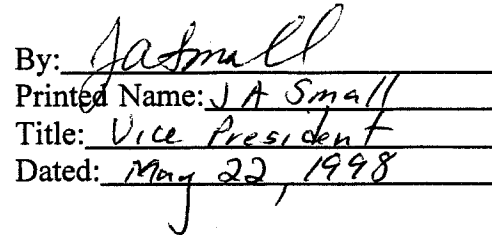 By: JA Small
Printed Name: J A Small
Title: Vice President
Dated: May 22, 1998